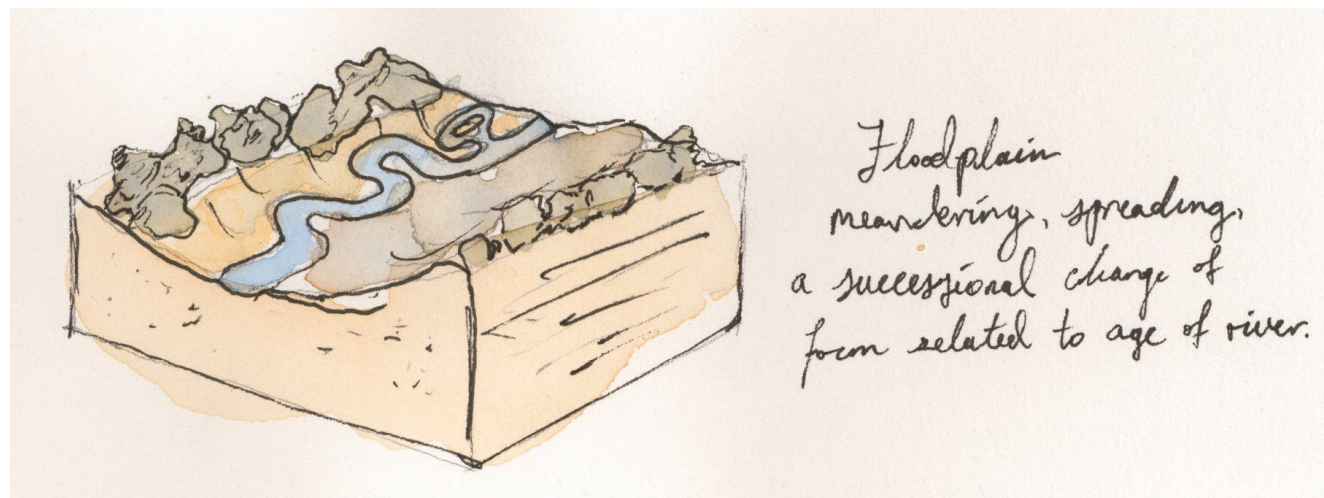 Floodplain
meandering, spreading,
a successional change of
form related to age of river.